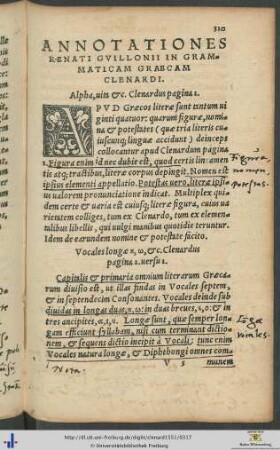 320
ANNOTATIONES
RENATI GVILLONII IN GRAM-
MATICAM GRAECAM
CLENARDI.
Alpha, uita &c. Clenardus pagina 1.
APVD Græcos literæ sunt tantum ui
ginti quatuor: quarum figura, nomi
na & potestates (quæ tria literis cu
iuscunq; linguæ accidunt) deinceps
collocantur apud Clenardum pagina
1. Figura enim id nec dubie est, quod certis lineamen
tis atq; tractibus, literæ corpus depingit. Nomen est
ipsius elementi appellatio. Potestas uero, literæ ipsi
us ualorem pronunciatione indicat. Multiplex quidem
certe & uaria est cuiusq; literæ figura, cuius ua
rietatem colliges, tum ex Clenardo, tum ex elemen-
tinibus libellis, qui uulgi manibus quotidie teruntur.
Idem de earundem nomine & potestate facito.
Vocales longæ η, ω, &c. Clenardus
pagina 2. uersu 1.
Capitulis & primaria omnium literarum Græca-
rum diuisio est, ut illæ findas in Vocales septem,
& in septendecim Consonantes. Vocales deinde sub
diuidas in longas duas, η, ω: in duas breues, ε, ο: & in
tres ancipites, α, ι, υ. Longæ sunt, quæ semper lon-
gam efficiunt syllabam, nisi cum terminant dictio-
nem, & sequens dictio incipit a Vocali: tunc enim
Vocales natura longæ, & Diphthongi omnes com-
V 5 munem
Figura,
nomen,
potestas.
Longæ
vocales.
Nota.
http://dl.ub.uni-freiburg.de/diglit/clenard1551/0317
© Universitätsbibliothek Freiburg